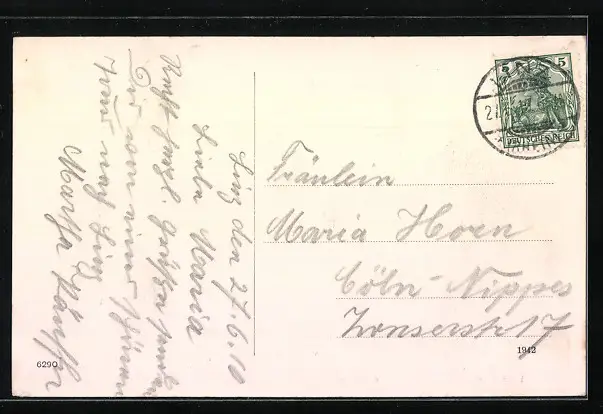 Linz den 27.6.10
Liebe Maria
Recht herzl. Grüße sendet
Dir von einer
Tour nach Linz
Martha
Fräulein
Maria Horn
Cöln-Nippes
Xonserstr 17
5 5
DEUTSCHES REICH
6290
1942